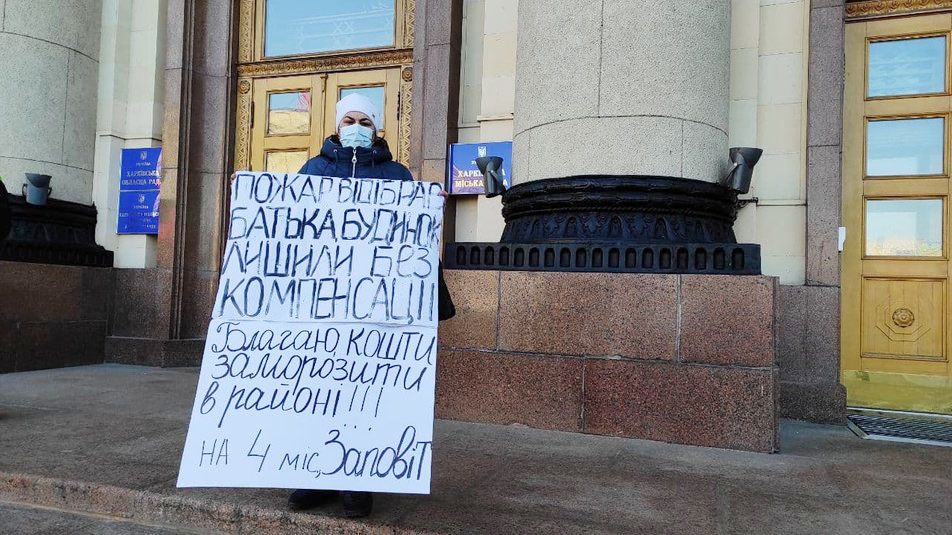 УКРАЇНА
ХАРКІВСЬКА
ОБЛАСНА РАДА
УКРАЇНА
ХАРКІВСЬКА
МІСЬКА
ПОЖАР ВІДІБРАВ
БАТЬКА БУДИНОК
ЛИШИЛИ БЕЗ
КОМПЕНСАЦІЇ
Благаю, кошти
заморозити
в районі!!!
на 4 міс, Заповіт